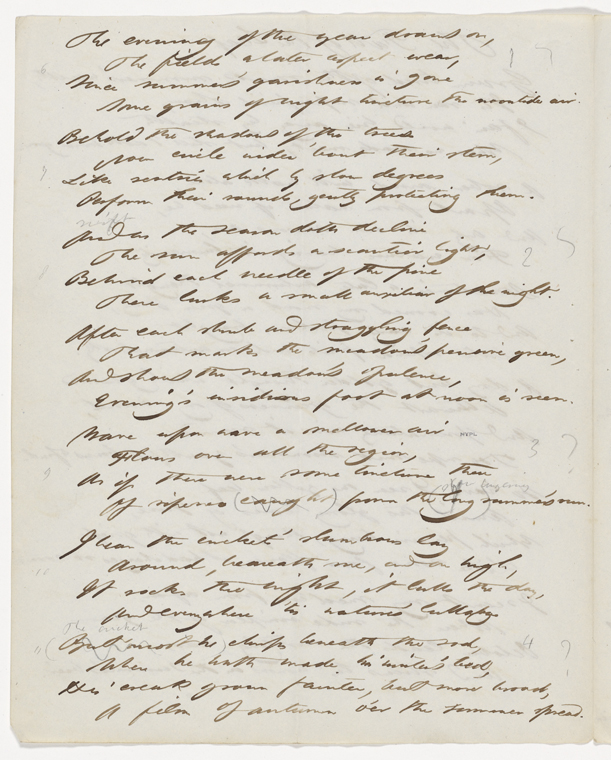 The evening of the year draws on,
The fields a later aspect wear,
Since summer's garishness is gone
Some grains of night tincture the noontide air.
Behold the shadows of the trees
Now circle wider 'bout their stem,
Like sentries which by slow degrees
Perform their rounds, gently protecting them.
And as the season doth decline
The sun affords a scantier light,
Behind each needle of the pine
There lurks a small auxiliar of the night.
After each shrub and straggling fence
That marks the meadow's pensive green,
And shows the meadow's opulence,
Evening's insidious foot at noon is seen.
Wave upon wave a mellower air
Flows over all the region,
As if there were some tincture there
Of ripeness (caught) from the long summer's sun.
I hear the cricket's slumbrous lay
Around, beneath me, and on high,
It rocks the night, it lulls the day,
And everywhere 'tis nature's lullaby.
The cricket
But most he chirps beneath the sod,
Where he hath made his winter's bed,
His creak grown fainter, but more broad,
A film of autumn o'er the summer spread.